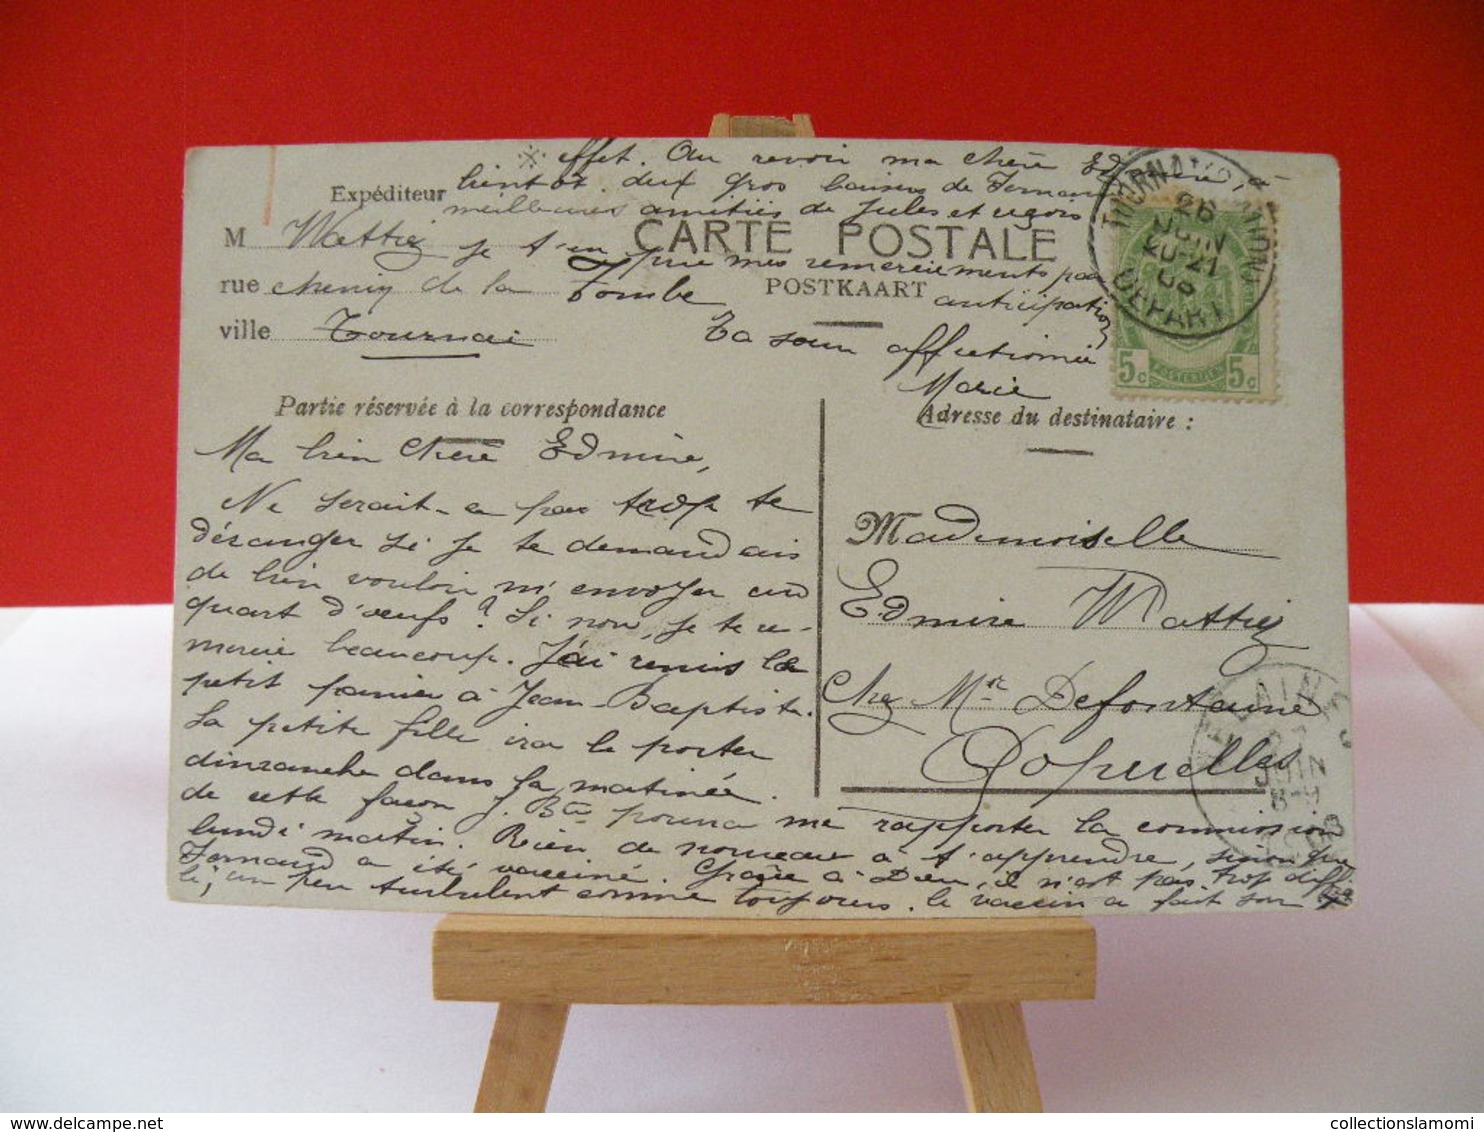 ※ effet. Au revoir ma chère Edmire, à
bientôt. deux gros baisers de Fernand
meilleures amitiés de Jules et
Expéditeur
M Wattiez
je t'en
que mes remerciements par
CARTE POSTALE
rue chemin de la Tombe
POSTKAART
anticipation
ville Tournai
Ta sœur affectionnée
Marie
TOURNAI STATION
26
JUIN
20-21
DÉPART
5c POSTERIJEN 5c
Partie réservée à la correspondance
Ma bien chère Edmire,
Ne serait-ce pas trop te
déranger si je te demandais
de bien vouloir m'envoyer un
quart d'œufs? Si non, je te re-
mercie beaucoup. J'ai remis le
petit panier à Jean-Baptiste.
La petite fille ira le porter
dimanche dans la matinée.
de cette façon J. Bte pourra me rapporter la commission
lundi matin. Rien de nouveau à t'apprendre, sinon que
Fernand a été vacciné. Grâce à Dieu, il n'est pas trop diffi-
le; un peu turbulent comme toujours. le vaccin a fait son ※
Adresse du destinataire :
Mademoiselle
Edmire Wattiez
Chez Mr Defontaine
Popuelles
JUIN
8-9
collectionslamomi